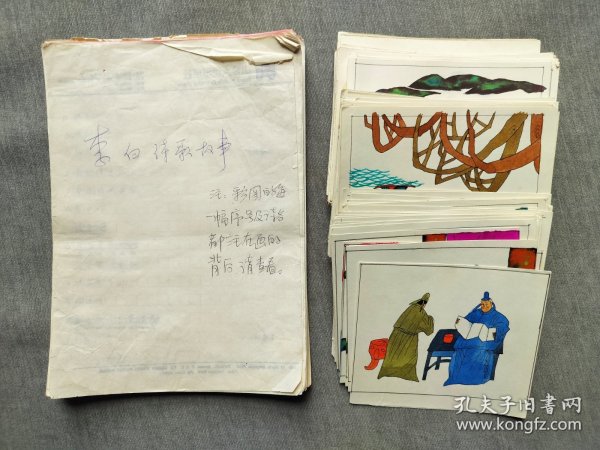 李白诗歌故事
注：彩图的每
一幅序号及诗
都注在画的
背后请查看。
孔夫子旧书网
www.kongfz.com